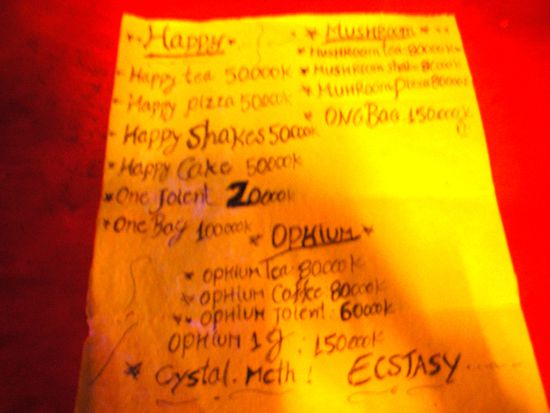 Happy
Happy tea 50000k
Happy pizza 50000k
Happy Shakes 50000k
Happy Cake 50000k
One Joient 20000k
One Bag 100000k
MUSHRooM
MUSHRooM tea 80000k
MUSHRooM shake 80000k
MUHRooM Pizza 80000k
ONG Bag 150000k
OPHIUM
OPHIUM Tea 80000k
OPHIUM Coffee 80000k
OPHIUM Joient: 60000k
OPHIUM 1g: 150000k
Cystal. Meth! ECSTASY